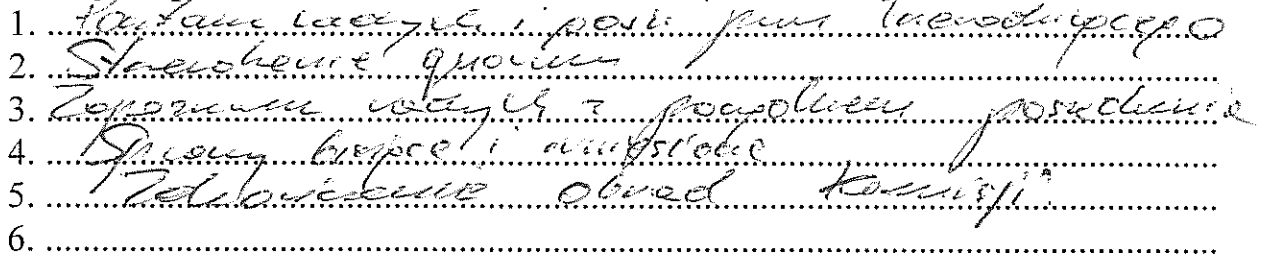 1. radnych i przez Przewodniczącego
2. Stwierdzenie quorum
3. Zapoznanie radnych z porządkiem posiedzenia
4. Sprawy bieżące i wniesione
5. Zakończenie obrad Komisji.
6.